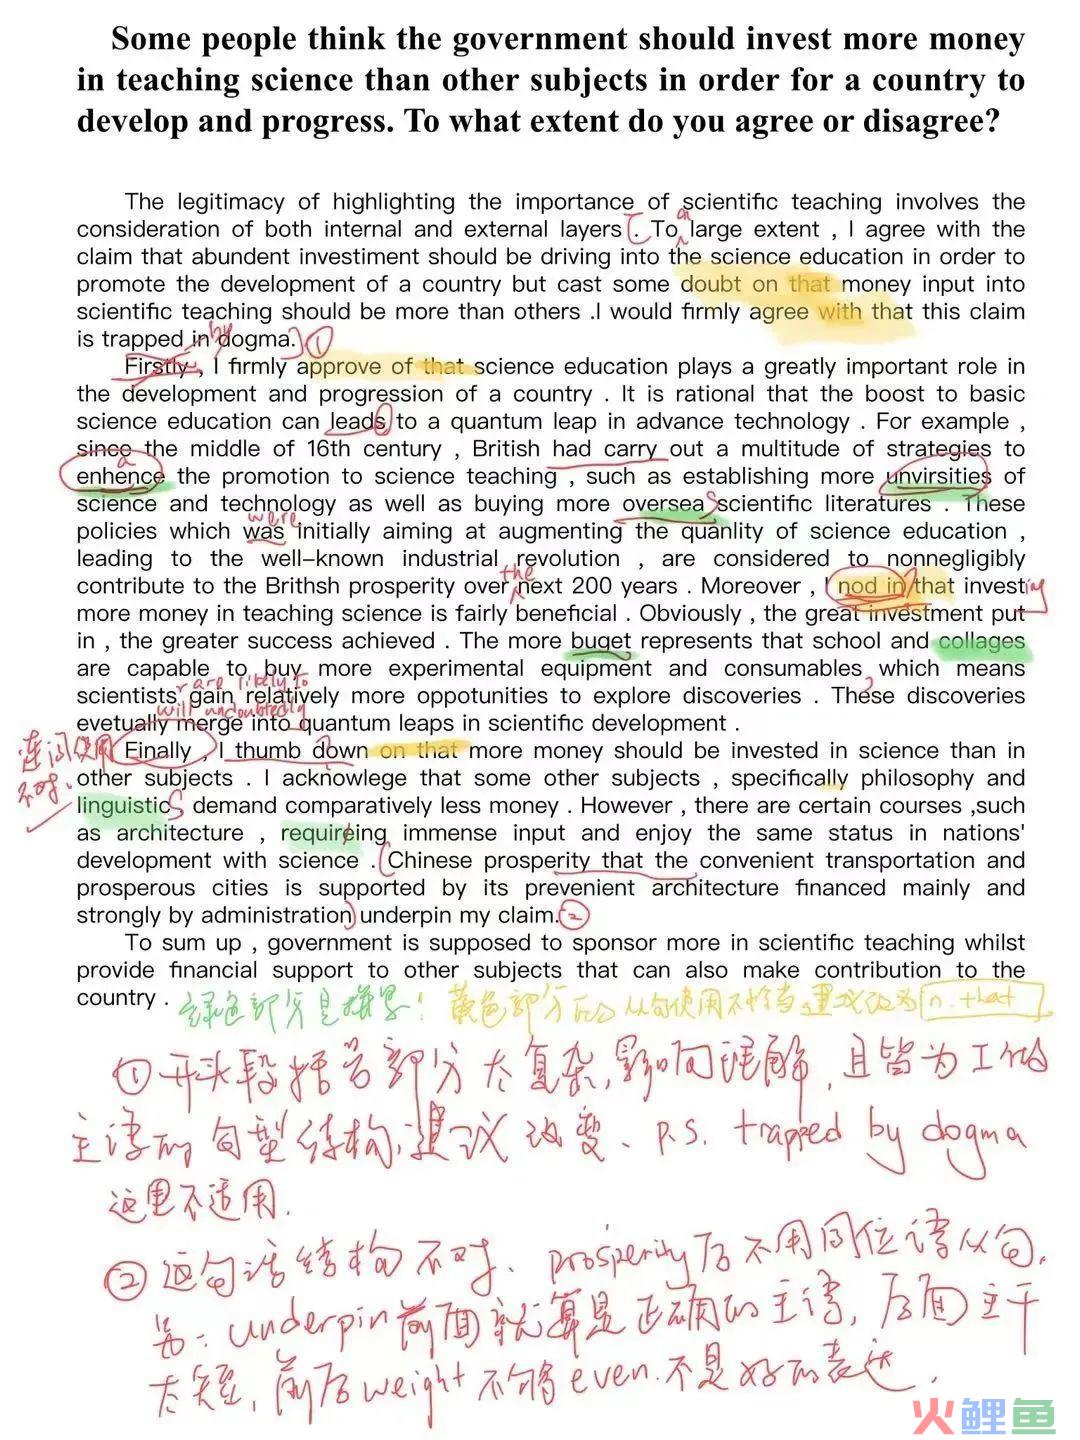 Some people think the government should invest more money
in teaching science than other subjects in order for a country to
develop and progress. To what extent do you agree or disagree?
The legitimacy of highlighting the importance of scientific teaching involves the
a
consideration of both internal and external layers . To large extent , I agree with the
claim that abundent investiment should be driving into the science education in order to
promote the development of a country but cast some doubt on that money input into
scientific teaching should be more than others .I would firmly agree with that this claim
by
is trapped in dogma. ①
Firstly , I firmly approve of that science education plays a greatly important role in
the development and progression of a country . It is rational that the boost to basic
science education can leads to a quantum leap in advance technology . For example ,
since the middle of 16th century , British had carry out a multitude of strategies to
a
enhence the promotion to science teaching , such as establishing more unvirsities of
s
science and technology as well as buying more oversea scientific literatures . These
were
policies which was initially aiming at augmenting the quanlity of science education ,
leading to the well-known industrial revolution , are considered to nonnegligibly
the
contribute to the Brithsh prosperity over next 200 years . Moreover , I nod in that invest
ing
more money in teaching science is fairly beneficial . Obviously , the great investment put
in , the greater success achieved . The more buget represents that school and collages
are capable to buy more experimental equipment and consumables which means
are likely to
scientists gain relatively more oppotunities to explore discoveries . These discoveries
will undoubtedly
evetually merge into quantum leaps in scientific development .
连词使用
不对.
Einally , I thumb down on that more money should be invested in science than in
other subjects . I acknowlege that some other subjects , specifically philosophy and
linguistic s demand comparatively less money . However , there are certain courses ,such
as architecture , requireing immense input and enjoy the same status in nations'
development with science . Chinese prosperity that the convenient transportation and
prosperous cities is supported by its prevenient architecture financed mainly and
strongly by administration underpin my claim. ②
To sum up , government is supposed to sponsor more in scientific teaching whilst
provide financial support to other subjects that can also make contribution to the
country .
绿色部分是拼写! 黄色部分后 从句使用不恰当 建议改为 n. that
① 开头段括号部分太复杂,影响理解,且皆为工做
主语的句型结构,建议改变、p.s. trapped by dogma
这里不适用.
② 这句话结构不对、prosperity后不用同位语从句.
另: underpin前面就算是正确的主语, 后面主干
太短, 前后weight不够even.不是好的表达.
火鲤鱼